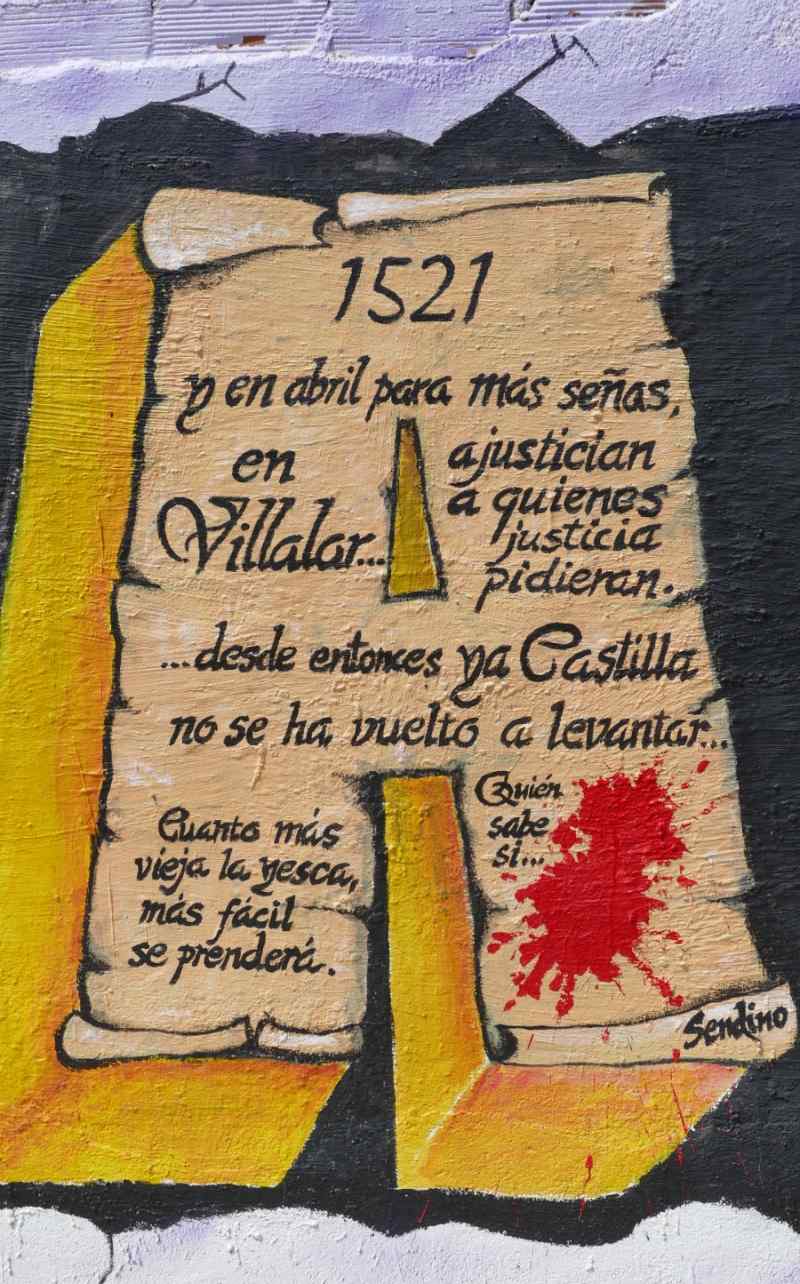 1521
y en abril para más señas,
en
Villalar...
ajustician
a quienes
justicia
pidieran.
...desde entonces ya Castilla
no se ha vuelto a levantar...
Cuanto más
vieja la yesca,
más fácil
se prenderá.
Quién
sabe
si...
Sendino